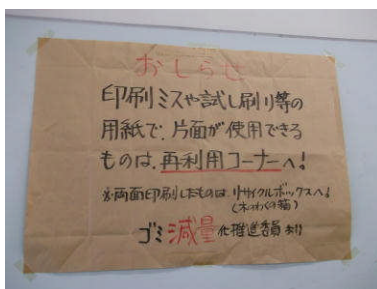 おしらせ
印刷ミスや試し刷り等の
用紙で、片面が使用できる
ものは、再利用コーナーへ!
※両面印刷したものは、リサイクルボックスへ!
(木のわくの箱)
ゴミ減量化推進委員より